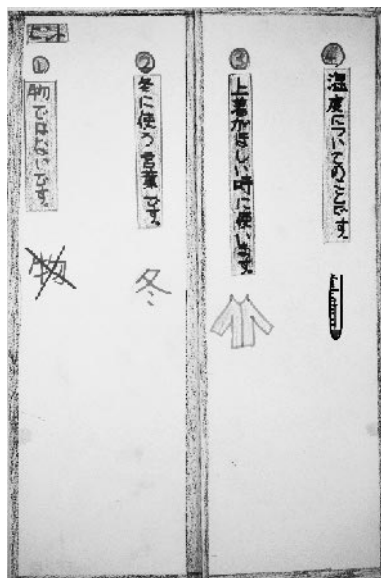 ヒント
①
物ではないです。
物
②
冬に使う言葉です。
冬
③
上着がほしい時に使います。
④
温度についてのことです。